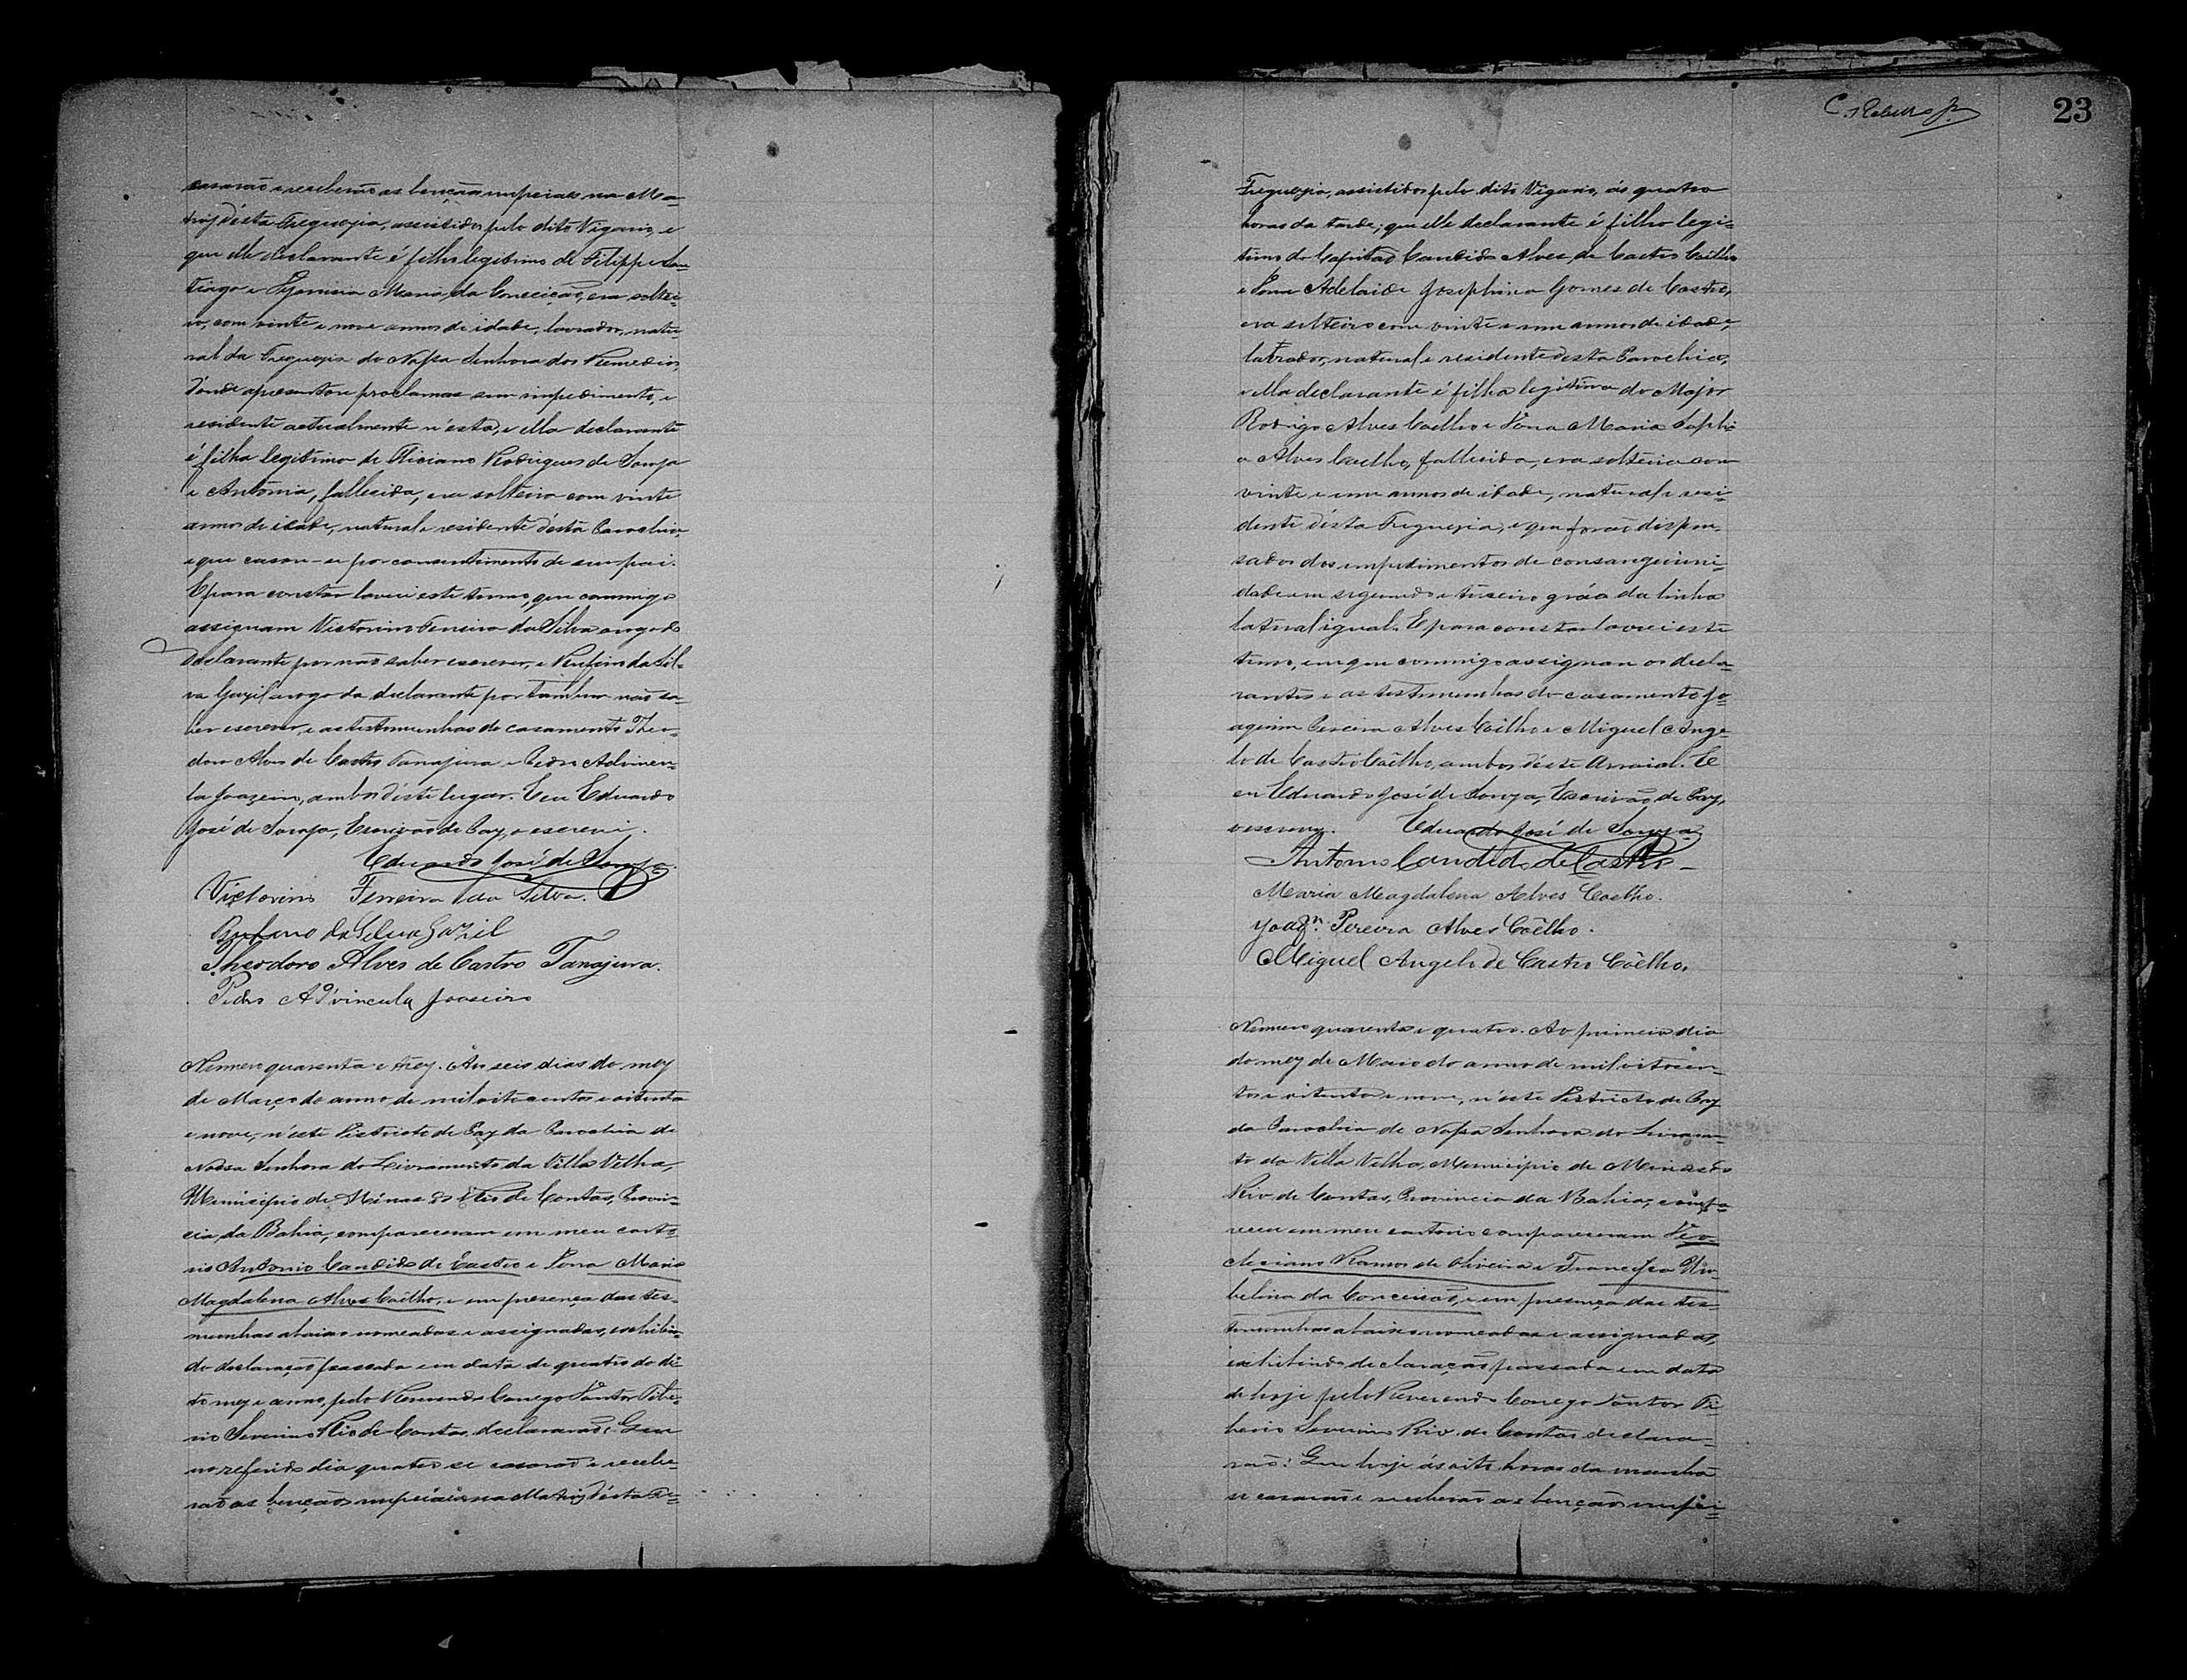 casarão e receberão as bençãos nupciaes na Ma-
triz désta Freguezia, assistidos pelo dito Vigario, e
que elle declarante é filho legitimo de Filippe San-
tiago e Maria da Conceição, era soltei-
ro, com vinte e nove annos de idade, lavrador, natu-
ral da Freguezia de Nossa Senhora dos Remedios,
d'onde apresentou proclamas sem impedimento, e
residente actualmente n'esta, e ella declarante
é filha legitima de Rodrigues de Souza
e Antonia, fallecida, era solteira com vinte
annos de idade, natural e residente désta Parochia,
e que casou-se por consentimento de seu pai.
E para constar lavrei este termo, que commigo
assignam Victorino Ferreira da Silva a rogo do
declarante por não saber escrever, e Rufino da Sil-
va Gazil a rogo da declarante por tambem não sa-
ber escrever, e as testemunhas do casamento Theo-
doro Alves de Castro Tanajura e Pedro Advincu-
la Joazeiro, ambos déste lugar. Eu Eduardo
José de Souza, Escrivão de Paz, o escrevi.
Eduardo José de Souza.
Victorino Ferreira da Silva.
Rufino da Silva Gazil
Theodoro Alves de Castro Tanajura.
Pedro Ad'vincula Joaseiro
Numero quarenta e trez. Aos seis dias do mez
de Março do anno de mil oito centos e oitenta
e nove, n'este Districto de Paz da Parochia de
Nossa Senhora do Livramento da Villa Velha,
Municipio de Minas do Rio de Contas, Provin-
cia da Bahia, compareceram em meu carto-
rio Antonio Candido de Castro e Dona Maria
Magdalena Alves Coêlho, e em presença das tes-
munhas abaixo nomeadas e assignadas, exhibin-
do declaração passada em data de quatro do di-
to mez e anno, pelo Reverendo Conego Doutor Tibe-
rio Severino Rio de Contas, declararão: Que
no referido dia quatro se casarão e recebe-
rão as bençãos nupciaes na Matriz désta Fre-
23
Freguezia, assistidos pelo dito Vigario, ás quatro
horas da tarde; que elle declarante é filho legi-
timo do Capitão Candido Alves de Castro Coêlho
e Dona Adelaide Josephina Gomes de Castro,
era solteiro com vinte e um annos de idade,
lavrador, natural e residente desta Parochia,
e ella declarante é filha legitima do Major
Rodrigo Alves Coelho e Dona Maria Saphi-
a Alves Coelho, fallecida, era solteira com
vinte e um annos de idade, natural e resi-
dente désta Freguezia, e que forão dispen-
sados dos impedimentos de consanguini-
dade em segundo e terceiro gráo da linha
lateral igual. E para constar lavrei este
termo, em que commigo assignam os decla-
rantes e as testemunhas do casamento Jo-
aquim Pereira Alves Coêlho e Miguel Ange-
lo de Castro Coêlho, ambos déste Arraial. E
eu Eduardo José de Souza, Escrivão de Paz,
o escrevy. Eduardo José de Souza
Antonio Candido de Castro
Maria Magdalena Alves Coelho.
Joaqn. Pereira Alves Coêlho.
Miguel Angelo de Castro Coêlho.
Numero quarenta e quatro. Ao primeiro dia
do mez de Maio do anno de mil oitocen-
tos e oitenta e nove, n'este Districto de Paz
da Parochia de Nossa Senhora do Livramen-
to da Villa Velha, Municipio de Minas do
Rio de Contas, Provincia da Bahia, compa-
receu em meu cartorio compareceram Deo-
cleciano Ramos de Oliveira e Francisca Um-
belina da Conceicão, e em presença das tes-
temunhas abaixo nomeadas e assignadas,
exhibindo declaração passada em data
de hoje pelo Reverendo Conego Doutor Ti-
berio Severino Rio de Contas declara-
rão: Que hoje ás oito horas da manhã
se casarão e receberão as bençãos nupci-